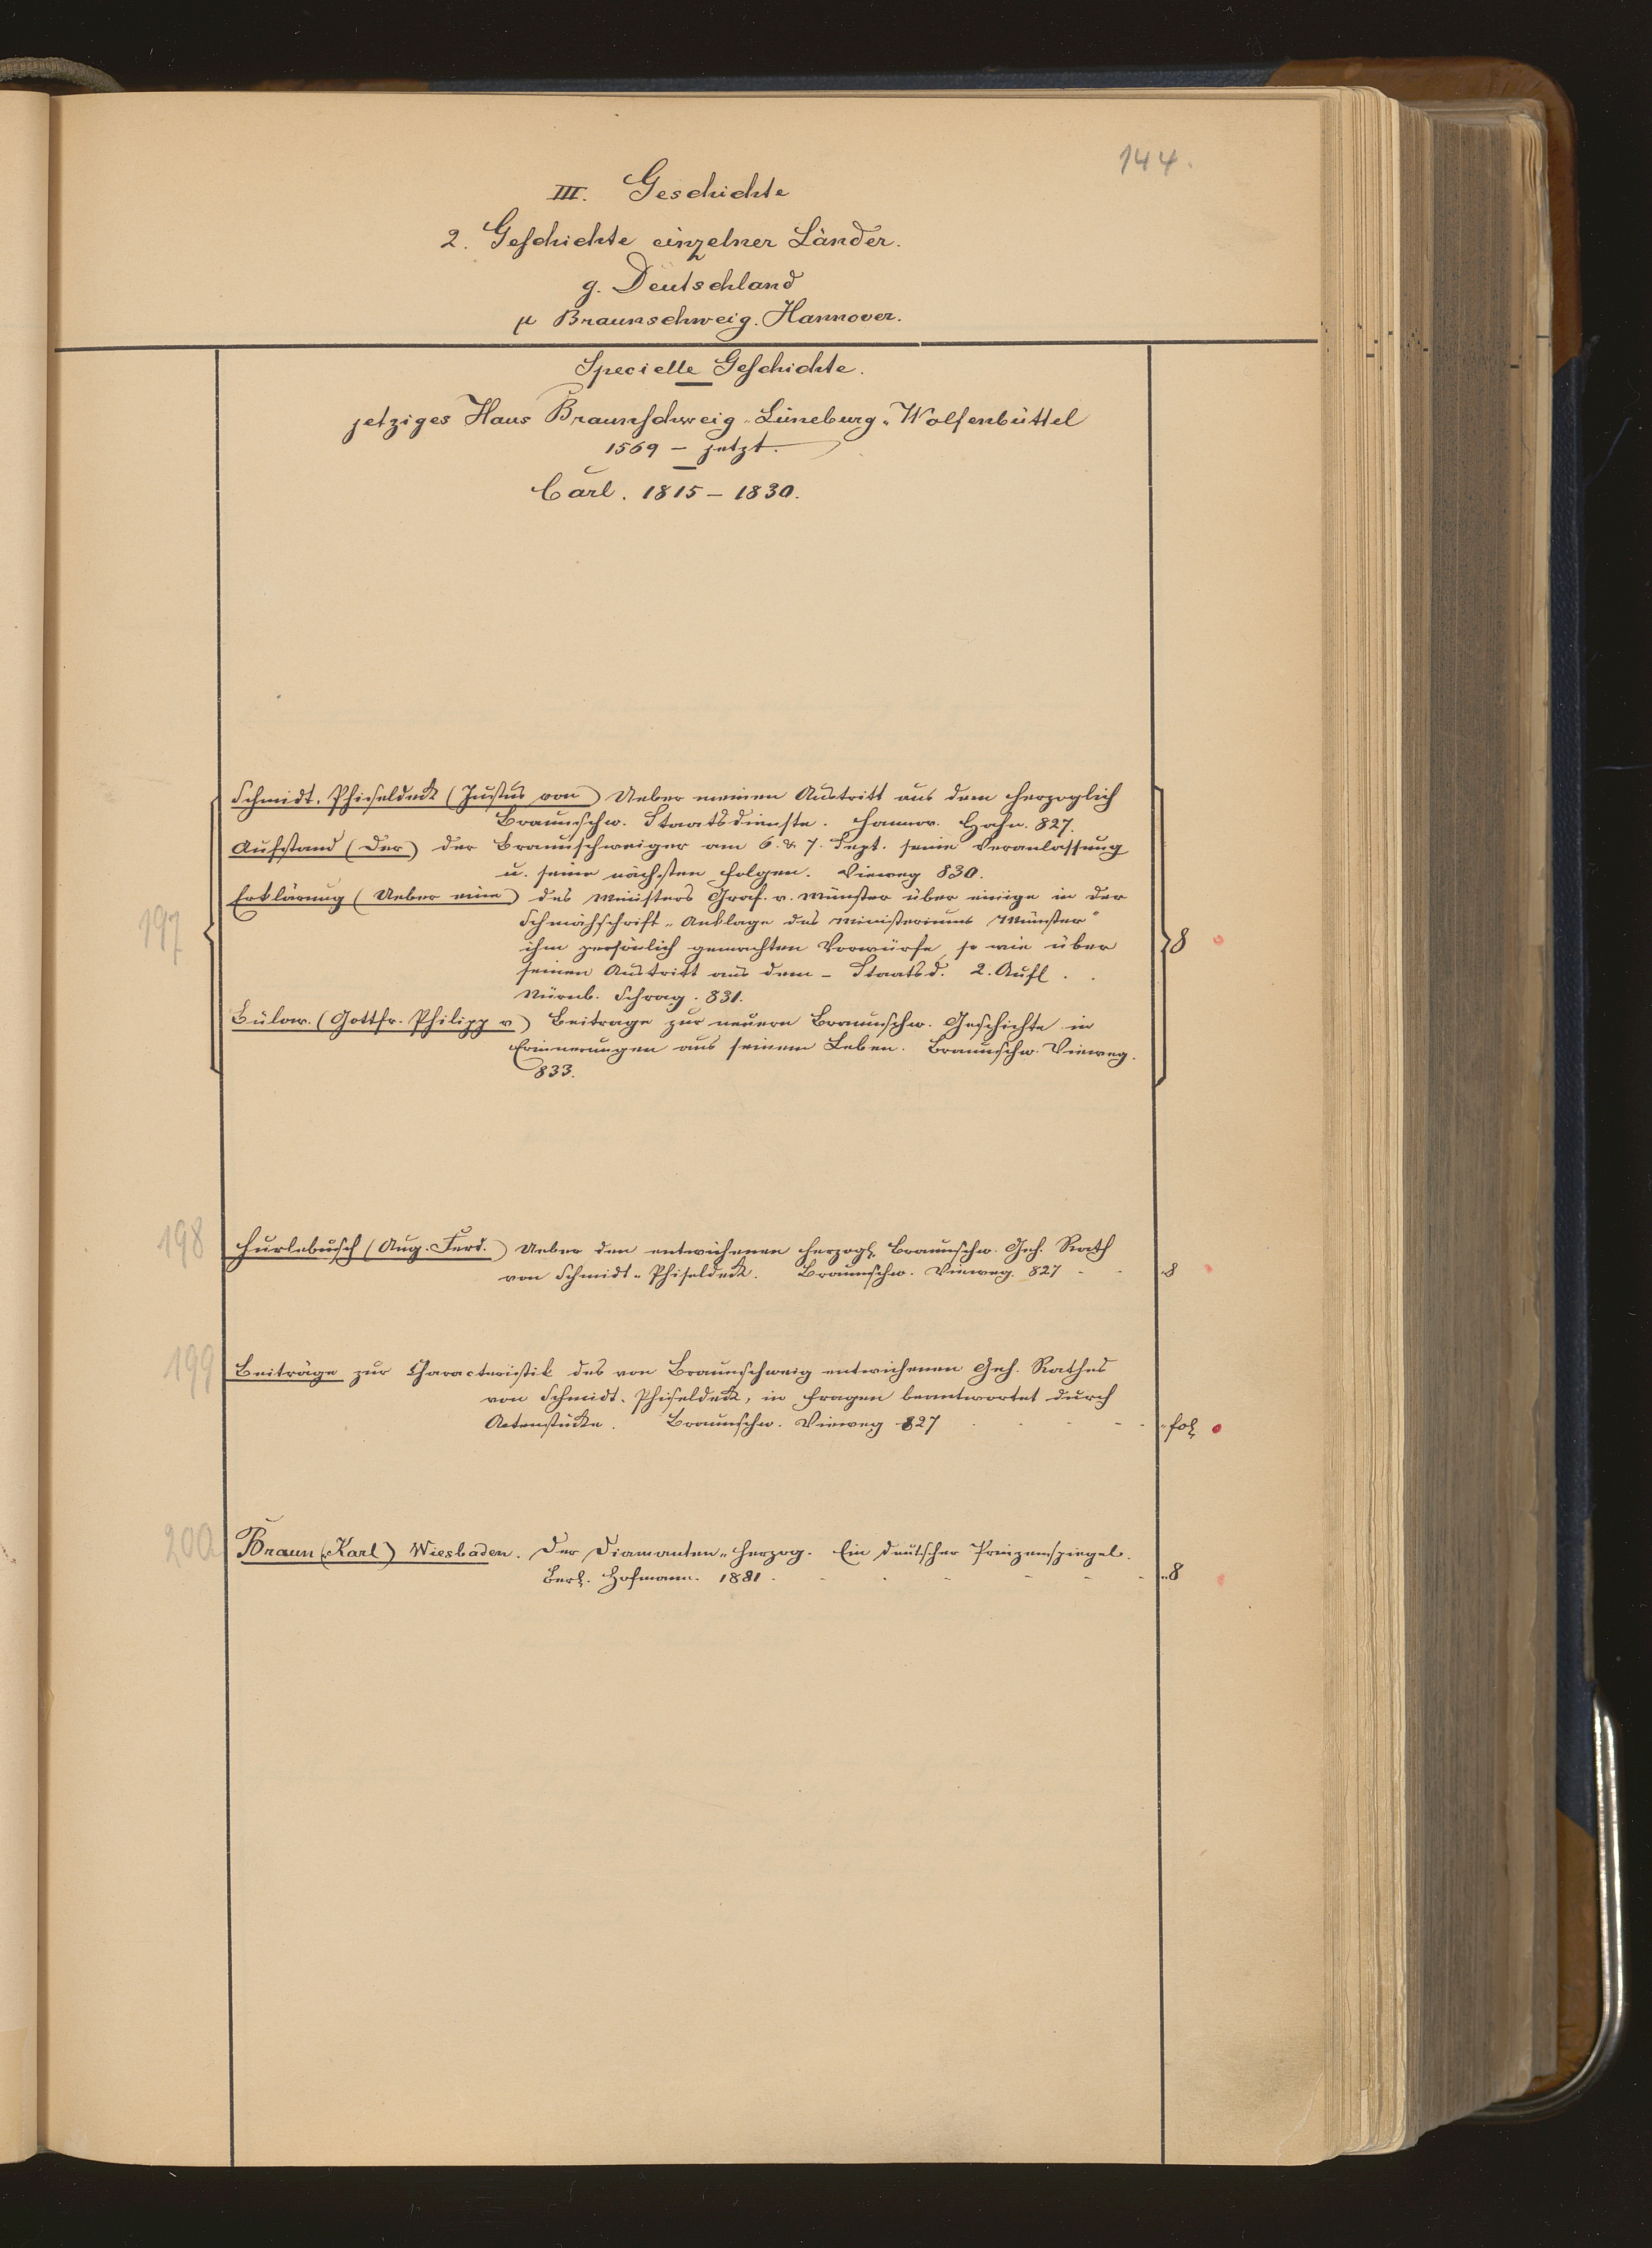 144.
III. Geschichte
2. Geschichte einzelner Länder.
g. Deutschland
μ Braunschweig. Hannover.
Specielle Geschichte.
jetziges Haus Braunschweig-Lüneburg-Wolfenbüttel
1569 – jetzt.
Carl. 1815 – 1830.
Schmidt-Phiseldeck (Justus von) Ueber meinen Austritt aus dem Herzoglich
Braunschw. Staatsdienste. Hannov. Hahn. 827.
Aufstand (Der) der Braunschweiger am 6. & 7. Sept. seine Veranlassung
u. seine nächsten Folgen. Vieweg 830.
197 Erklärung (Ueber eine) des Ministers Graf. v. Münster über einige in der
Schmähschrift „Anklage des Ministeriums Münster"
ihm persönlich gemachten Vorwürfe, so wie über 8
seinen Austritt aus dem – Staatsd. 2. Aufl.
Nürnb. Schrag. 831.
Bülow. (Gottfr. Philipp v) Beitrage zur neuern Braunschw. Geschichte in
Erinnerungen aus seinem Leben. Braunschw. Vieweg.
833.
198 Hurlebusch (Aug. Ferd.) Ueber den entwichenen Herzogl. Braunschw. Geh. Rath
von Schmidt-Phiseldeck. Braunschw. Vieweg. 827 - - 8
199 Beiträge zur Characteristik des von Braunschweig entwichenen Geh. Rathes
von Schmidt-Phiseldeck, in Fragen beantwortet durch
Actenstücke. Braunschw. Vieweg 827 - - - - fol.
200 Braun (Karl) Wiesbaden. Der Diamanten-Herzog. Ein deutscher Prinzenspiegel.
Berl. Hofmann. 1881. - - - - - - 8